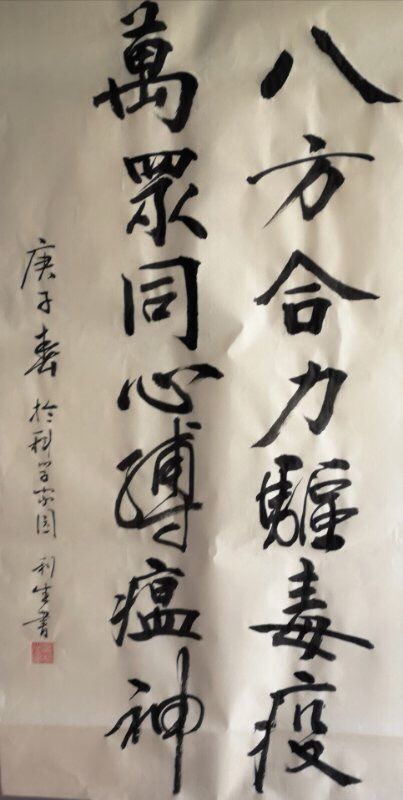 八方合力驅毒疫
萬眾同心縛瘟神
庚子春於科學家園 利生書